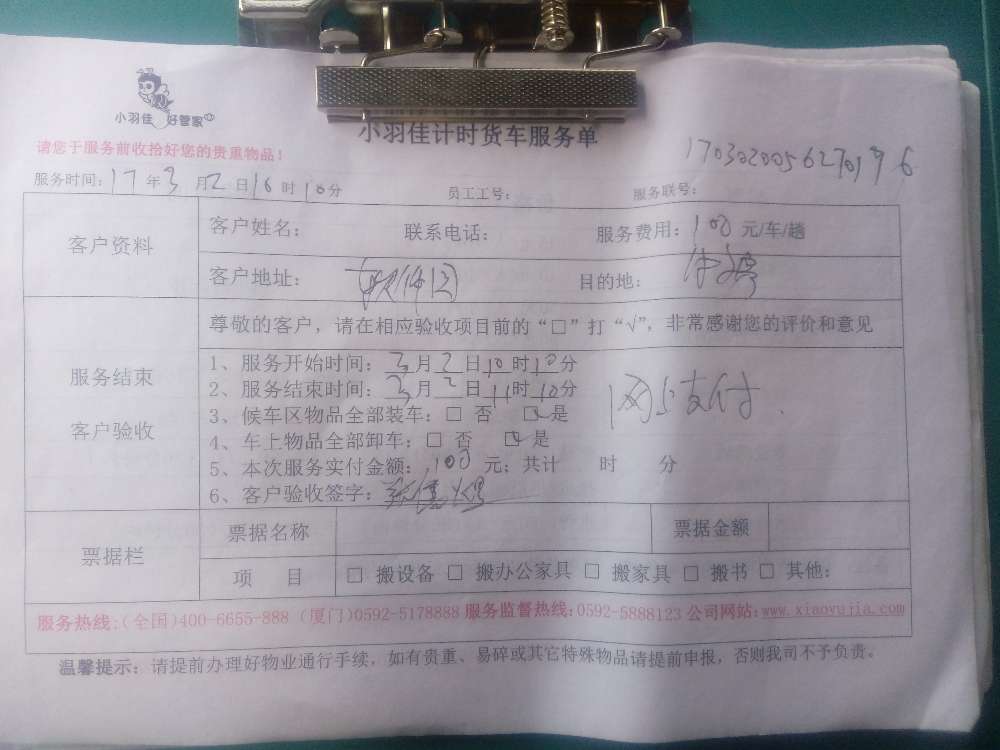 小羽佳 好管家
小羽佳计时货车服务单
请您于服务前收拾好您的贵重物品！
服务时间：17年3月2日10时10分 员工工号： 服务联号：
客户资料
客户姓名： 联系电话： 服务费用：100元/车/趟
客户地址：软件园 目的地：
服务结束
客户验收
尊敬的客户，请在相应验收项目前的“□”打“√”，非常感谢您的评价和意见
1、服务开始时间：3月2日10时10分
2、服务结束时间：3月2日11时10分
3、候车区物品全部装车：□ 否 □ 是
4、车上物品全部卸车：□ 否 □ 是
5、本次服务实付金额：100元；共计 时 分
6、客户验收签字：
网上支付
票据栏
票据名称 票据金额
项 目 □ 搬设备 □ 搬办公家具 □ 搬家具 □ 搬书 □ 其他：
服务热线：(全国)400-6655-888 (厦门)0592-5178888 服务监督热线：0592-5888123 公司网站：www.xiaoyujia.com
温馨提示：请提前办理好物业通行手续，如有贵重、易碎或其它特殊物品请提前申报，否则我司不予负责。